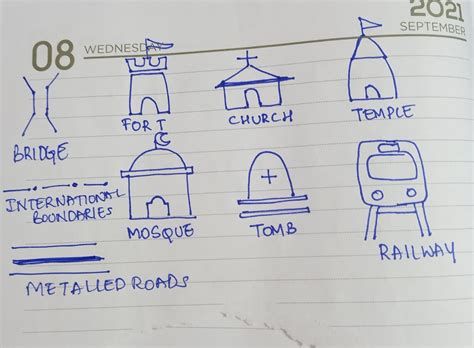 2021
08 WEDNESDAY
SEPTEMBER
BRIDGE
FORT
CHURCH
TEMPLE
INTERNATIONAL
BOUNDARIES
MOSQUE
TOMB
RAILWAY
METALLED ROADS